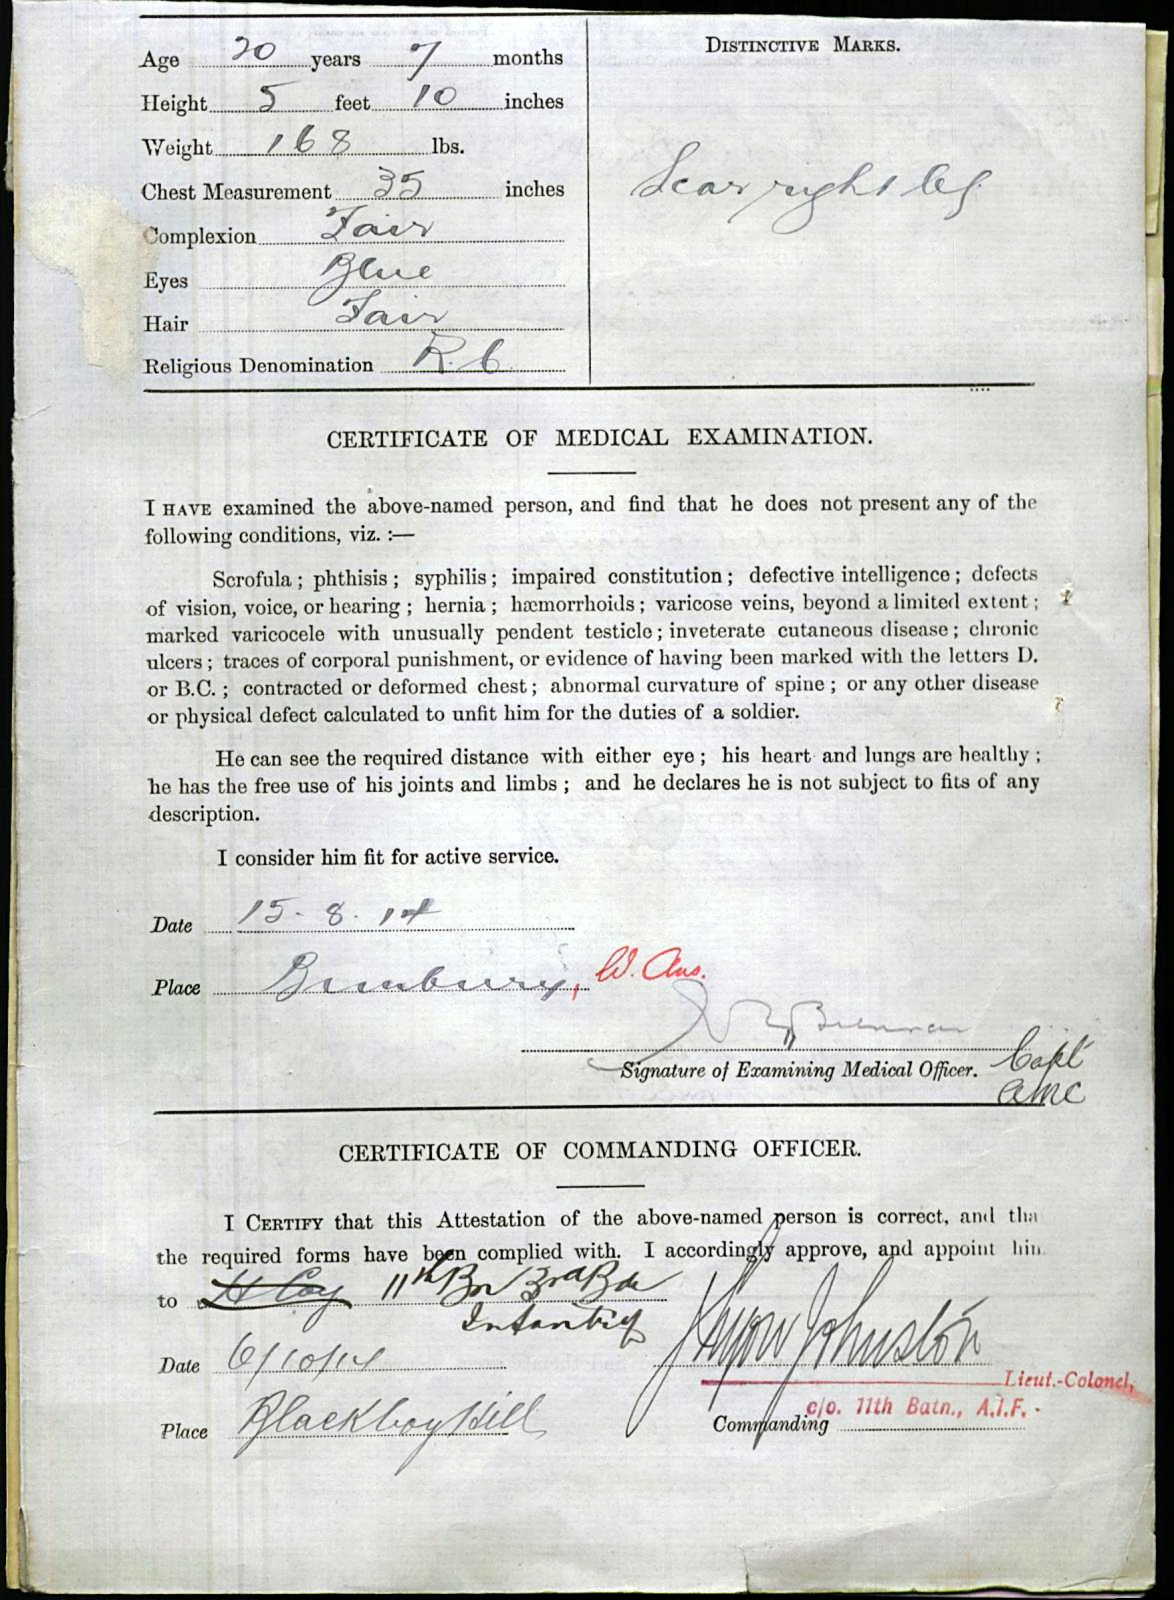 Age 20 years 7 months
Height 5 feet 10 inches
Weight 168 lbs.
Chest Measurement 35 inches
Complexion Fair
Eyes Blue
Hair Fair
Religious Denomination R.C.
DISTINCTIVE MARKS.
Scar right leg.
CERTIFICATE OF MEDICAL EXAMINATION.
I HAVE examined the above-named person, and find that he does not present any of the
following conditions, viz. :—
Scrofula ; phthisis ; syphilis ; impaired constitution ; defective intelligence ; defects
of vision, voice, or hearing ; hernia ; hæmorrhoids ; varicose veins, beyond a limited extent ;
marked varicocele with unusually pendent testicle ; inveterate cutaneous disease ; chronic
ulcers ; traces of corporal punishment, or evidence of having been marked with the letters D.
or B.C. ; contracted or deformed chest ; abnormal curvature of spine ; or any other disease
or physical defect calculated to unfit him for the duties of a soldier.
He can see the required distance with either eye ; his heart and lungs are healthy ;
he has the free use of his joints and limbs ; and he declares he is not subject to fits of any
description.
I consider him fit for active service.
Date 15. 8. 14
Place Bunbury, W. Aus.
Brennan
Signature of Examining Medical Officer. Capt
AMC
CERTIFICATE OF COMMANDING OFFICER.
I CERTIFY that this Attestation of the above-named person is correct, and tha
the required forms have been complied with. I accordingly approve, and appoint him
to H Coy 11th Bn 3rd Bde
Infantry
Lyon Johnston
Date 6/10/14
Lieut.-Colonel,
c/o. 11th Batn., A.I.F.
Place Blackboy Hill
Commanding